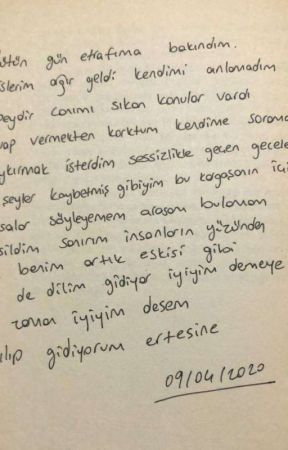 üstün gün etrafıma bakındım.
islerim ağır geldi kendimi anlamadım
şeydir canımı sıkan konular vardı
vap vermekten korktum kendime sorama
ykırmak isterdim sessizlikle geçen gecele
şeyler kaybetmiş gibiyim bu kargaşanın içi
salar söyleyemem arasam bulamam
sildim sanırım insanların yüzünden
benim artık eskisi gibi
de dilim gidiyor iyiyim demeye
zaman iyiyim desem
lıp gidiyorum ertesine
09/04/2020